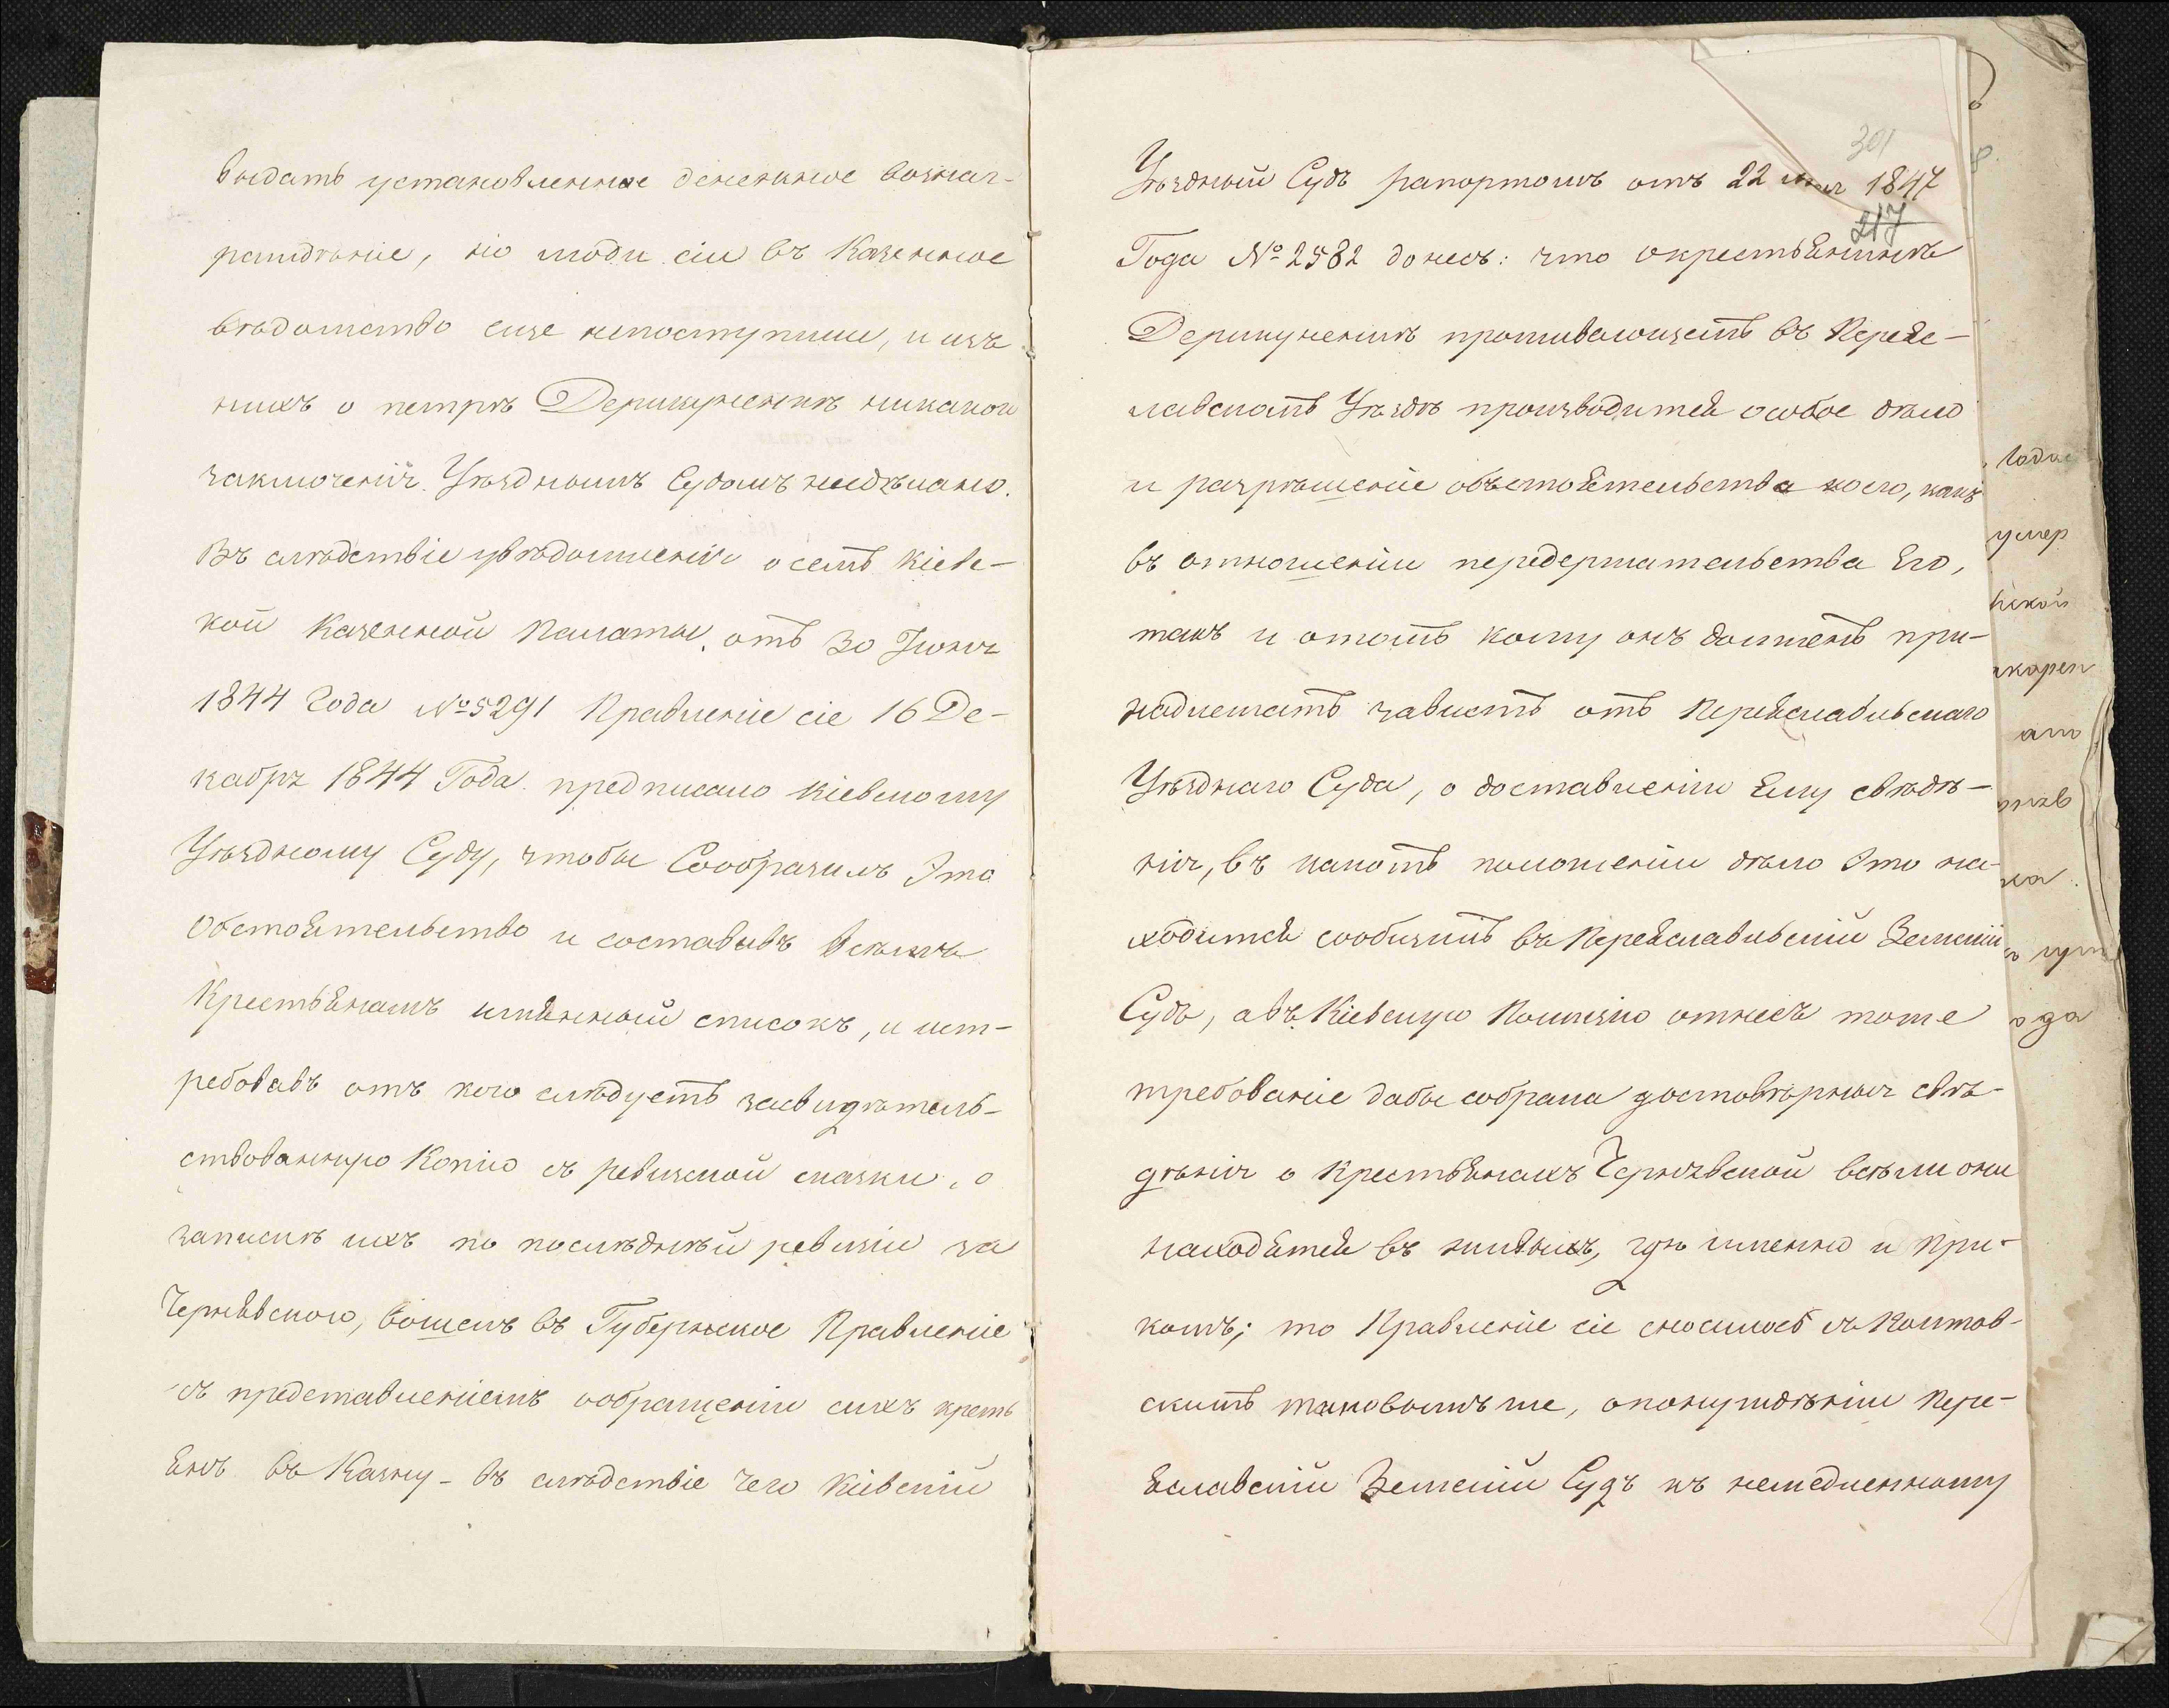 выдать установленное денежное вознаг-
ражденіе, но люди сіи въ Казенное
вѣдомство еще непоступили, и изъ
нихъ о петрѣ Деришученкѣ никакои
заключенія Уѣзднымъ Судомъ неедѣлано.
Въ слѣдствіе увѣдомленія осемъ Кіевс-
кой Казенной Палаты, отъ 30 Іюня
1844 Года № 5291 Правленіе сіе 16 Де-
кабря 1844 Года предписало Кіевскому
Уѣздному Суду, чтобы Сообразилъ Это
Обстоятельство и составивъ всѣмъ
Крестьянамъ имянный списокъ, и ист-
ребовавъ отъ кого слѣдуетъ засвидѣтель-
ствованную Копію съ ревизской сказки, о
запискѣ ихъ по послѣдней ревизіи за
Чернявского, вошелъ въ Губернское Правленіе
съ представленіемъ ообращеніи сихъ крест
янъ въ Казну - въ слѣдствіе чего Кіевскій
301
Уѣздный Судъ рапортомъ отъ 22 1847
217
Года № 2582 донесъ: что окрестьянинѣ
Деришученкѣ проживающемъ въ Перяс-
лавскомъ Уѣздѣ производится особое дѣло
и разрѣшеніе обьстоятельства коего, какъ
въ отношеніи передержательства Его,
такъ и отомъ кому онъ долженъ при-
надлежать зависитъ отъ Переяславльскаго
Уѣзднаго Суда, о доставленіи Ему свѣдѣ-
нія, въ какомъ положеніи дѣло Это на-
ходится сообщитъ въ Переяславльскій Земскій
Судъ, авъ Кіевскую Полицію отнесъ тоже
требованіе дабы собрала достовѣрныя свѣ-
дѣнія о Крестьянахъ Чернявской всѣли они
находятся въ живыхъ, гдѣ именно и при
комъ; то Правленіе сіе сносилось съ Полтав-
скимъ таковымъ же, опонужденіи Пере-
яславскій Земскій Судъ къ немедленному